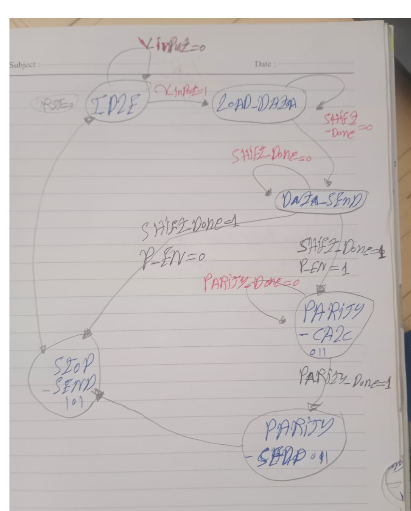 V-inPut=0
Subject :
Date :
RST=0
IDLE
V-inPut=1
LOAD_DATA
SHIFT
-Done=0
SHIFT-Done=0
DATA_SEND
SHIFT-Done=1
P_EN=0
SHIFT-Done=1
P_EN=1
PARITY-Done=0
PARITY
-CALC
011
STOP
-SEND
101
PARITY-Done=1
PARITY
-SEND